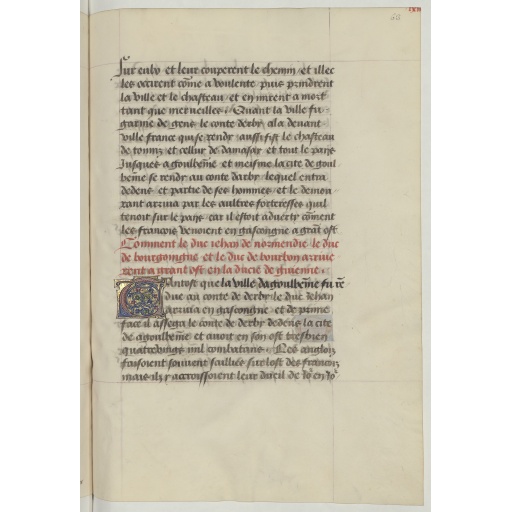 sur eulx et leur couperent le chemin et illec
les occirent cõme a voulente puis prindrent
la ville et le chasteau et en mirent a mort
tant que merveilles / Quant la ville fu
garnie de gens le conte derby ala devant
ville france qui se rendy aussi fist le chasteau
de et cellui de damasar et tout le pays
Jusques a goulhesme et meisme la cite de goul
hesme se rendy au conte darby lequel entra
dedens et partie de ses hommes et le demou
rant arriva par les aultres forteresses quil
tenoit sur le pays car il estoit adverty cõment
les francois venoient en gascongne a grãt ost
Comment le duc iehan de normendie le duc
de bourgoingne et le duc de bourbon arrive
rent a grant ost en la ducie de guienne .
Tantost que la ville dagoulhesme fu rẽ
due au conte de derby le duc iehan
arriva en gascongne et de prime
face il assega le conte de derby dedens la cite
de agoulhesme et avoit en son ost tresbien
quatrevingts mil combatans . Les anglois
faisoient souvent saillies sur lost des francois
mais ilz y accroissoient leur dueil de Jor en Jor